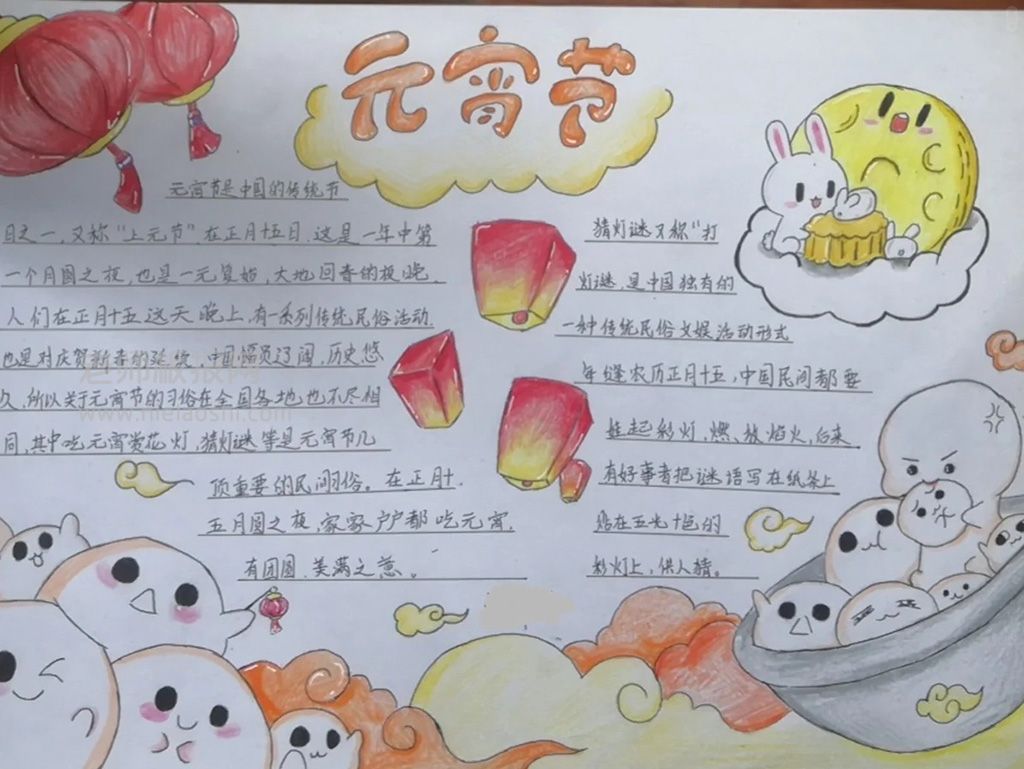 元宵节
元宵节是中国的传统节
日之一,又称"上元节"在正月十五日.这是一年中第
一个月圆之夜,也是一元复始,大地回春的夜晚.
人们在正月十五这天晚上,有一系列传统民俗活动.
也是对庆贺新春的延续.中国幅员辽阔,历史悠
久,所以关于元宵节的习俗在全国各地也不尽相
同,其中吃元宵赏花灯,猜灯谜等是元宵节几
项重要的民间习俗。在正月十
五月圆之夜,家家户户都吃元宵.
有团圆.美满之意。
猜灯谜又称"打
灯谜,是中国独有的
一种传统民俗文娱活动形式
年逢农历正月十五,中国民间都要
挂起彩灯,燃放焰火,后来
有好事者把谜语写在纸条上
贴在五光十色的
彩灯上,供人猜。
老师板报网
www.meilaoshi.com